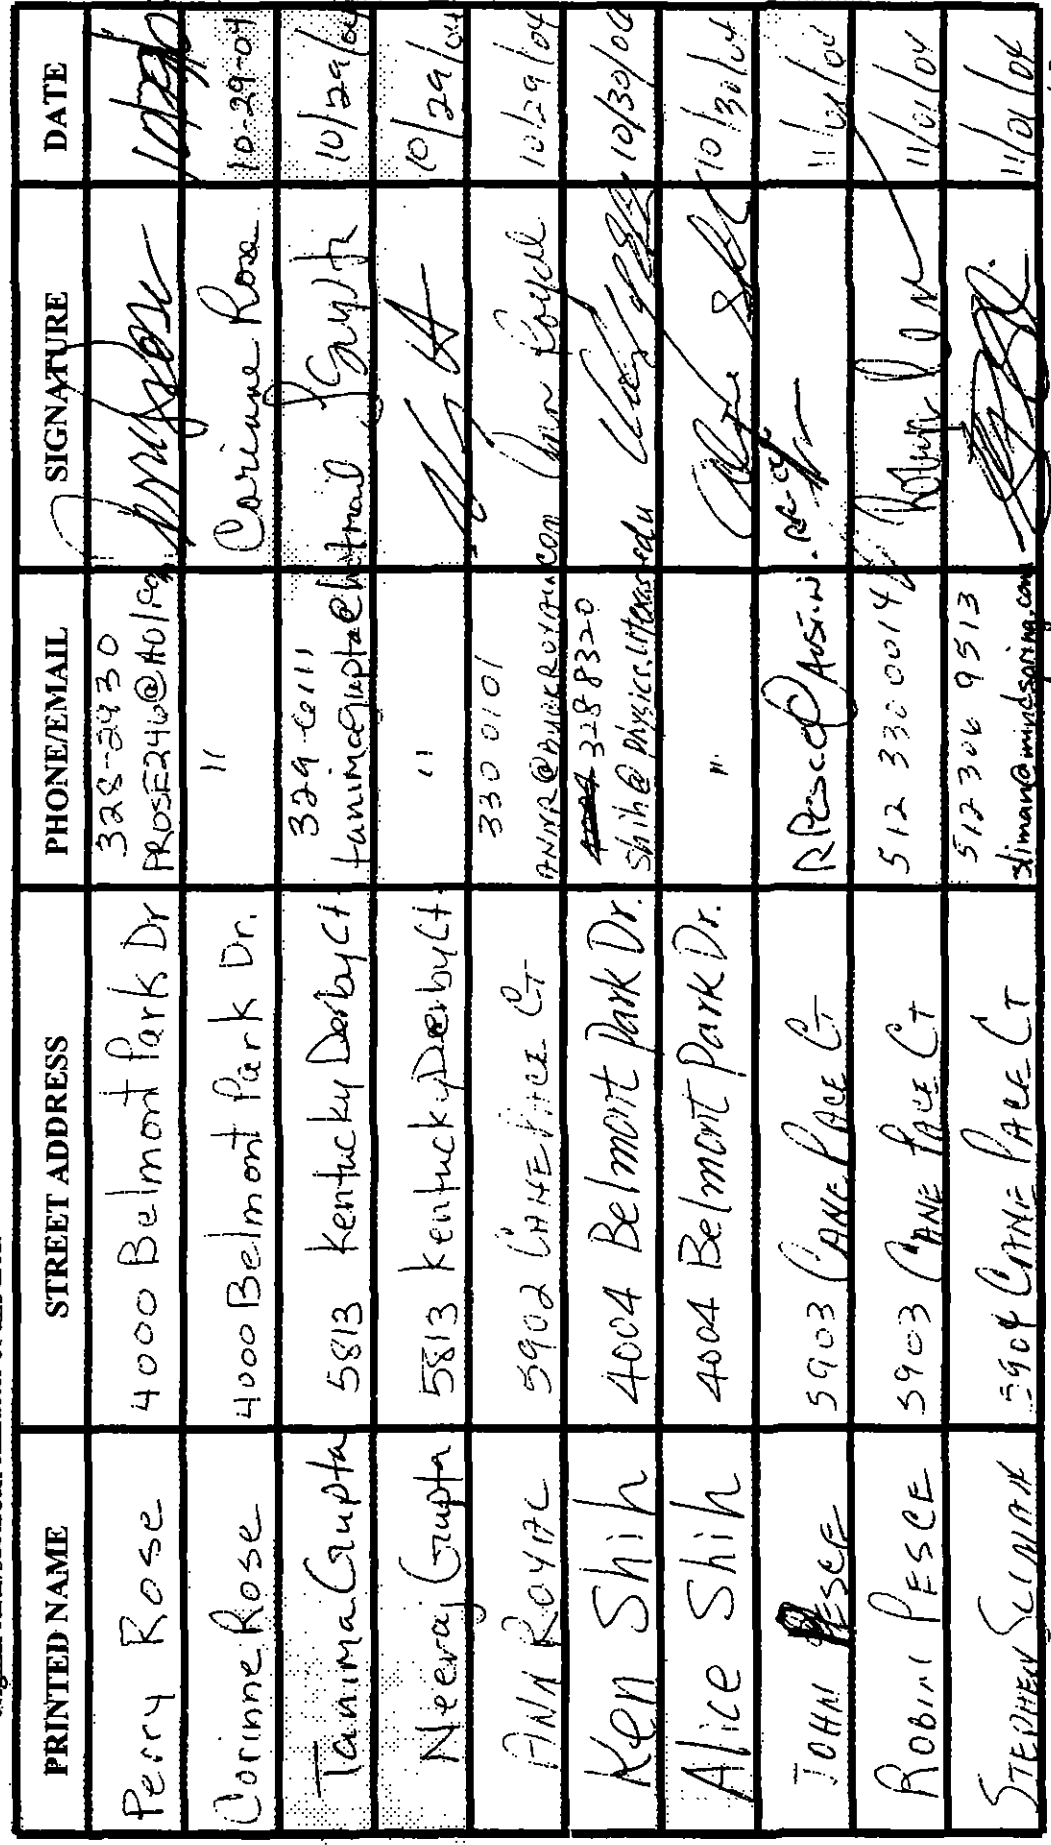 PRINTED NAME STREET ADDRESS PHONE/EMAIL SIGNATURE DATE
Perry Rose 4000 Belmont Park Dr 328-2930
PROSE246@
Corinne Rose 4000 Belmont Park Dr. " Corinne Rose 10-29-04
Tanima Gupta 5813 Kentucky Derby Ct 329-6111 Gupta 10/29/04
tanimagupta@hotmail
Neeraj Gupta 5813 Kentucky Derby Ct " 10/29/04
ANN ROYAL 5902 CANE PACE CT 330 0101 Ann Royal 10/29/04
Ken Shih 4004 Belmont Park Dr. 328 8320 10/30/04
Shih@physics.utexas.edu
Alice Shih 4004 Belmont Park Dr. " 10/30/04
JOHN PESCE 5903 CANE PACE CT RPesce@Austin.rr. 11/01/04
ROBIN PESCE 5903 CANE PACE CT 512 330 0014 11/01/04
STEPHEN SLIMAN 5904 CANE PACE CT 512 306 9513 11/01/04
sliman@mindspring.com